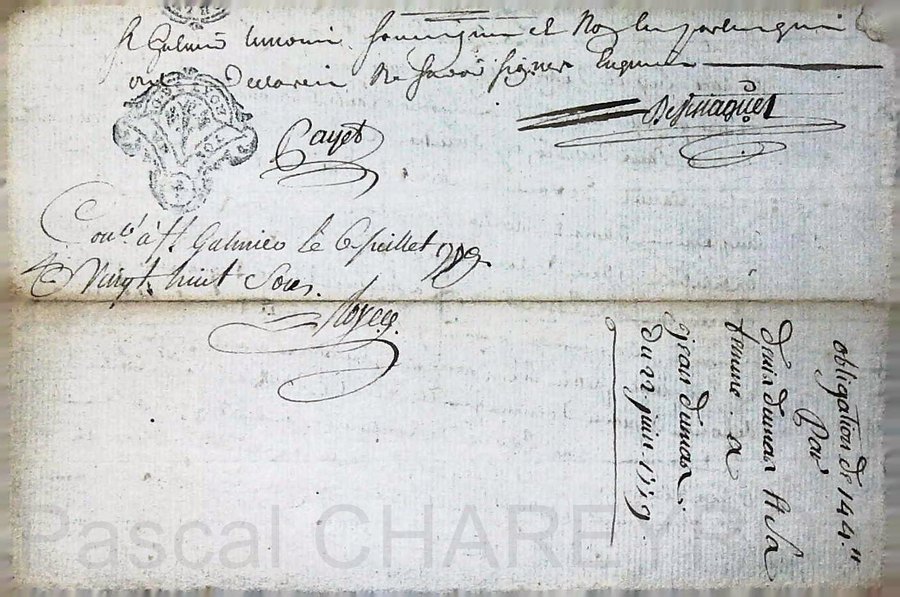 St Galmier temoins soussignés et Non les parties qui
ont Declaré Ne Savoir Signer Enquis
Cayet
Desjuaques
Conlé à St Galmier le 6 Juillet 1779
Vingt huit Sous.
Noyer
obligation de 144 ll
Par
denis dumas et sa
femme. a
jean dumas.
du 22 juin 1779
Pascal CHAREYR